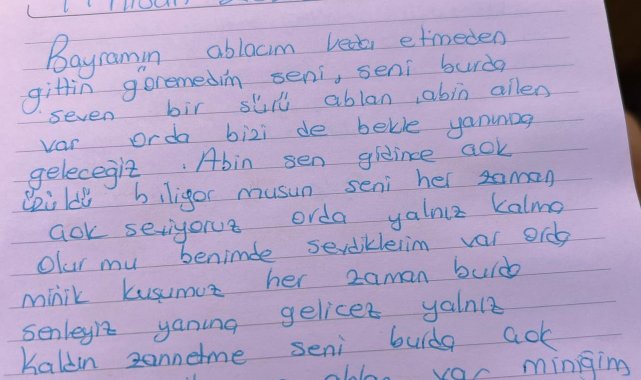 Bayramın ablacım veda etmeden
gittin göremedim seni, seni burda
seven bir sürü ablan, abin ailen
var orda bizi de bekle yanında
gelecegiz. Abin sen gidince aok
üzüldü biligor musun seni her zaman
aok seviyoruz orda yalnız kalma
olur mu benimde sevdiklerim var orda
minik kuşumuz her zaman burda
senleyiz yanına gelicez yalnız
kaldın zannetme seni burda aok
var minigim